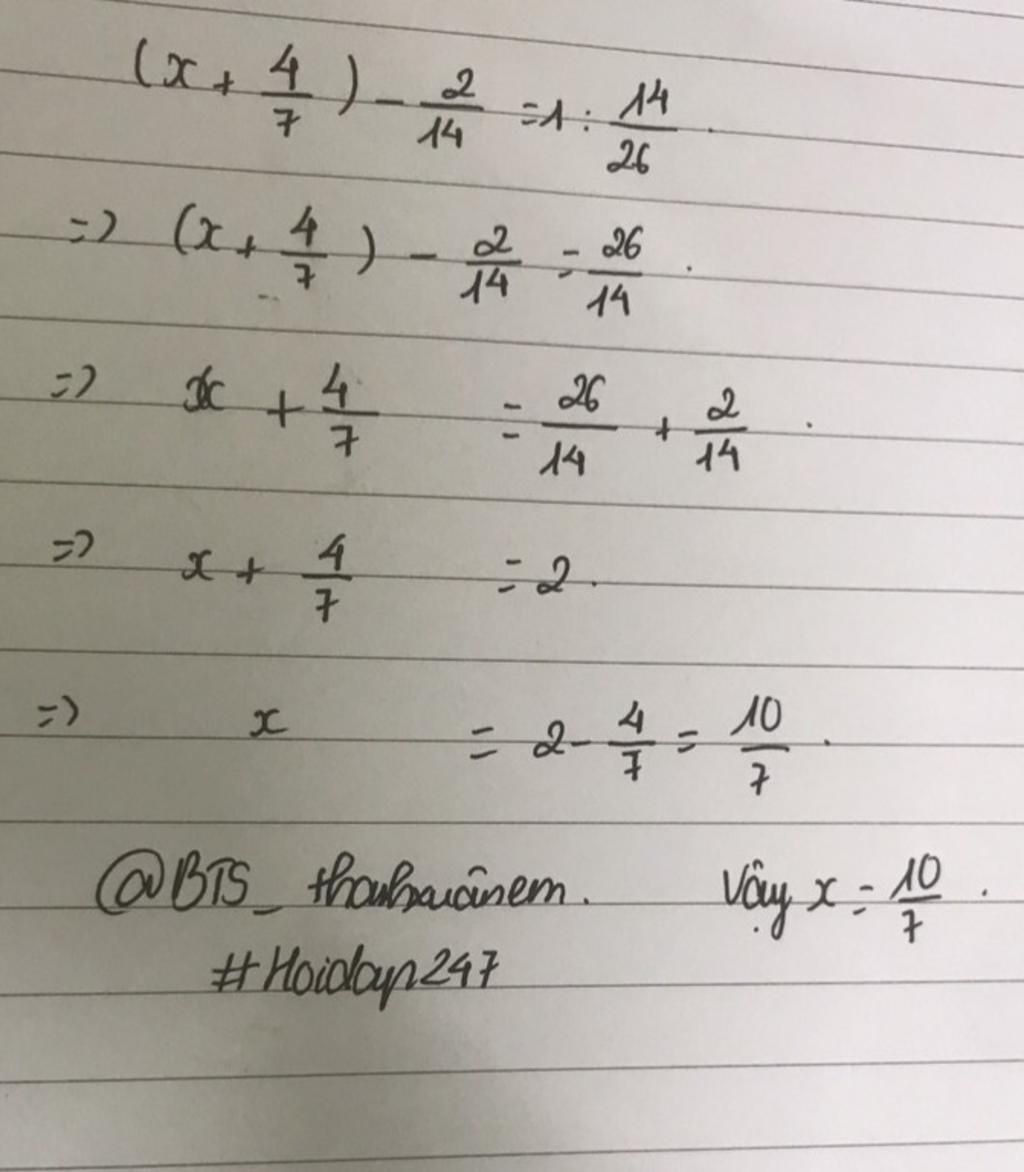 (x + 4/7) - 2/14 = 1 : 14/26 .
=> (x + 4/7) - 2/14 = 26/14 .
=> x + 4/7 = 26/14 + 2/14 .
=> x + 4/7 = 2 .
=> x = 2 - 4/7 = 10/7 .
@BTS_thanhxuânem. Vậy x = 10/7 .
#Hoidap247